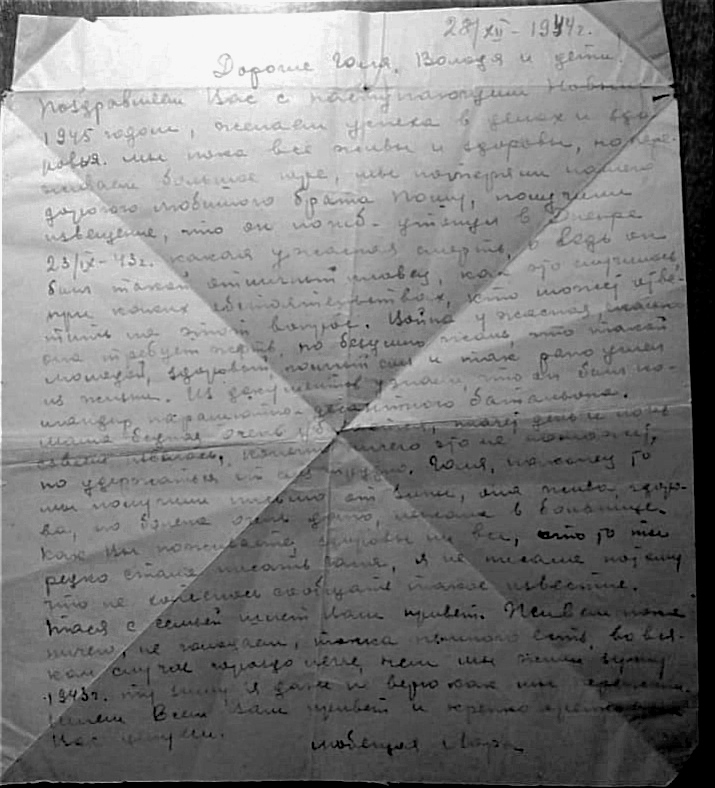 28/XII - 1944г.
Дорогие Галя, Володя и дети!
Поздравляем Вас с наступающим Новым
1945 годом, желаем успеха в делах и здо-
ровья. Мы пока все живы и здоровы, но пере-
живаем большое горе, мы потеряли нашего
дорогого любимого брата, получили
извещение, что он погиб - утонул в Днепре
23/IX - 43г. какая ужасная смерть, а ведь он
был такой отличный пловец, как это случилось,
при каких обстоятельствах, кто может отве-
тить на этот вопрос. Война ужасная, 
она требует жертв, но безумно жаль, что такой
молодой, здоровый, и так рано ушел
из жизни. Из документов узнали, что он был ко-
мандир парашютно-десантного батальона.
Мама бедная очень плачет день и ночь
конечно ничего это не поможет,
но удержаться от трудно. Галя, наконец то
мы получили письмо от она жива, здоро-
ва, но болела очень долго, лежала в больнице.
Как Вы поживаете, здоровы ли все, что то ты
редко стала писать Галя, я не писала потому
что не хотелось сообщать такое известие.
Тася с семьей шлет Вам привет. Живем пока
ничего, не голодаем, немного есть, во вся-
ком случае гораздо легче, чем мы жили зиму
1943г. ту зиму я даже не верю как мы
Шлем Всем Вам привет и крепко
Вас целуем.
любящая Лара